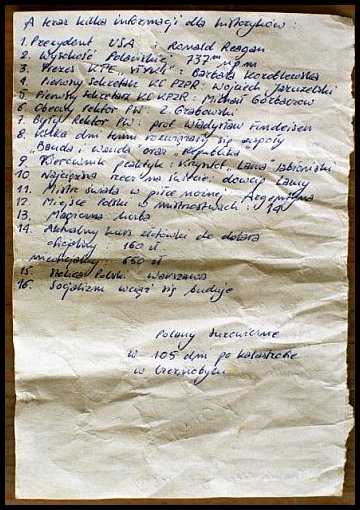 A teraz kilka informacji dla historyków:
1. Prezydent USA : Ronald Reagan
2. Wysokość Polanskiej 737 m npm
3. Prezes KTE „Tryk”: Barbara Korolewska
4. Pierwszy Sekretarz KC PZPR: Wojciech Jaruzelski
5. Pierwszy Sekretarz KC KPZR: Michaił Gorbaczow
6. Obecny Rektor PW: Z. Grabowski
7. Były Rektor PW: prof Władysław Findeisen
8. Kilka dni temu rozwiązały się zespoły
„Banda i Wanda” oraz „Republika”
9. Kierownik praktyki: Krzysztof „Lama” Jabłoński
10. Najcięższa rzecz na świecie: dowcip Lamy
11. Mistrz świata w piłce nożnej: Argentyna
12. Miejsce Polski w mistrzostwach: 14
13. Magiczna liczba
14. Aktualny kurs złotówki do dolara
oficjalny: 160 zł
nieoficjalny: 650 zł
15. Stolica Polski: Warszawa
16. Socjalizm wciąż się buduje
Polany Surowiczne
w 105 dni po katastrofie
w Czernobylu